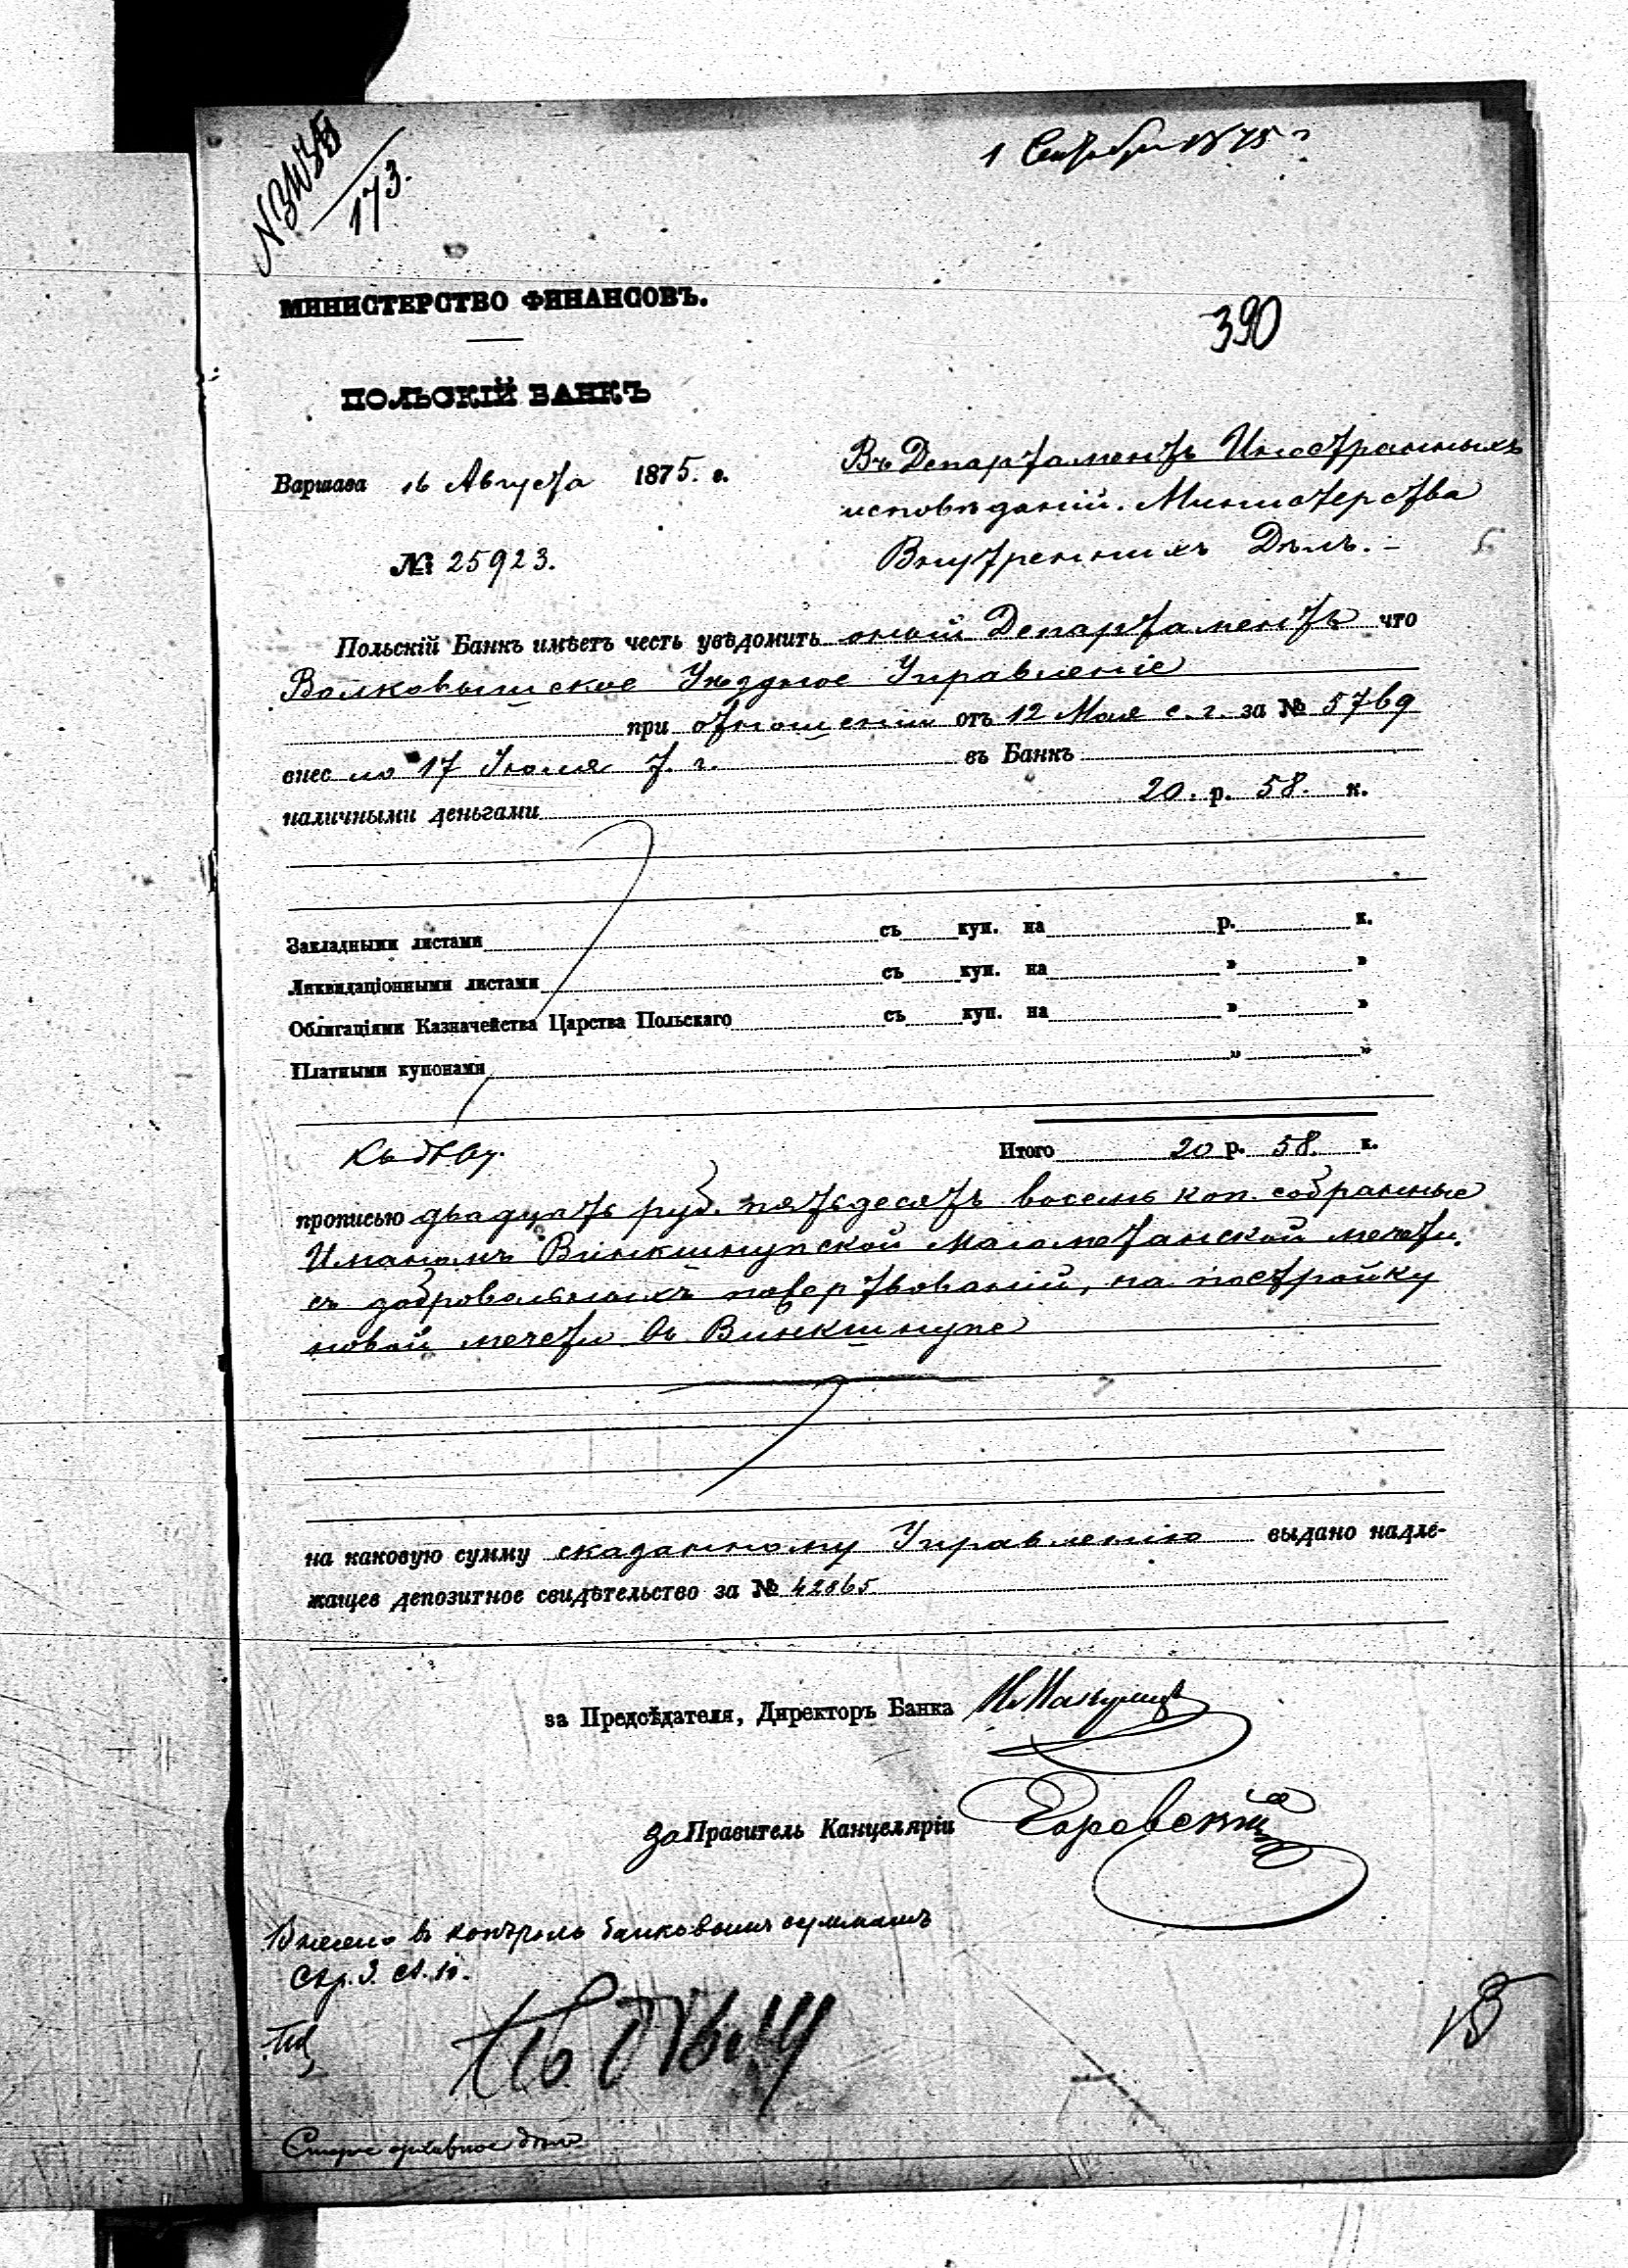 173.
1 Сентября 1875 г.
МИНИСТЕРСТВО ФИНАНСОВЪ.
390
ПОЛЬСКІЙ БАНКЪ
Варшава 16 Августа 1875. г.
№ 25923.
Въ Департаментъ Иностранныхъ
исповѣданій. Министерства
Внутреннихъ Дѣлъ. –
Польскій Банкъ имѣетъ честь увѣдомить оный Департаментъ что
Волковышское Уѣздное Управленіе
при отношеніи отъ 12 Мая с. г. за № 5769
внесло 17 Іюля т. г. въ Банкъ
наличными деньгами 20. р. 58. к.
Закладными листами съ куп. на р. к.
Ликвидаціонными листами съ куп. на " "
Облигаціями Казначейства Царства Польскаго съ куп. на " "
Платными купонами " "
Къ дѣлу.
Итого 20 р. 58. к.
прописью двадцать руб. пятьдесятъ восемь коп. собранные
Имамомъ Винкшнупской Магометанской мечети
съ добровольныхъ пожертвованій, на постройку
новой мечети въ Винкшнупе
на каковую сумму сказанному Управленію выдано надле-
жащее депозитное свидѣтельство за № 42865
за Предсѣдателя, Директоръ Банка
За Правитель Канцеляріи
Внесено въ контроль банковымъ суммамъ
Стр. 3. ст. 10.
Къ дѣлу